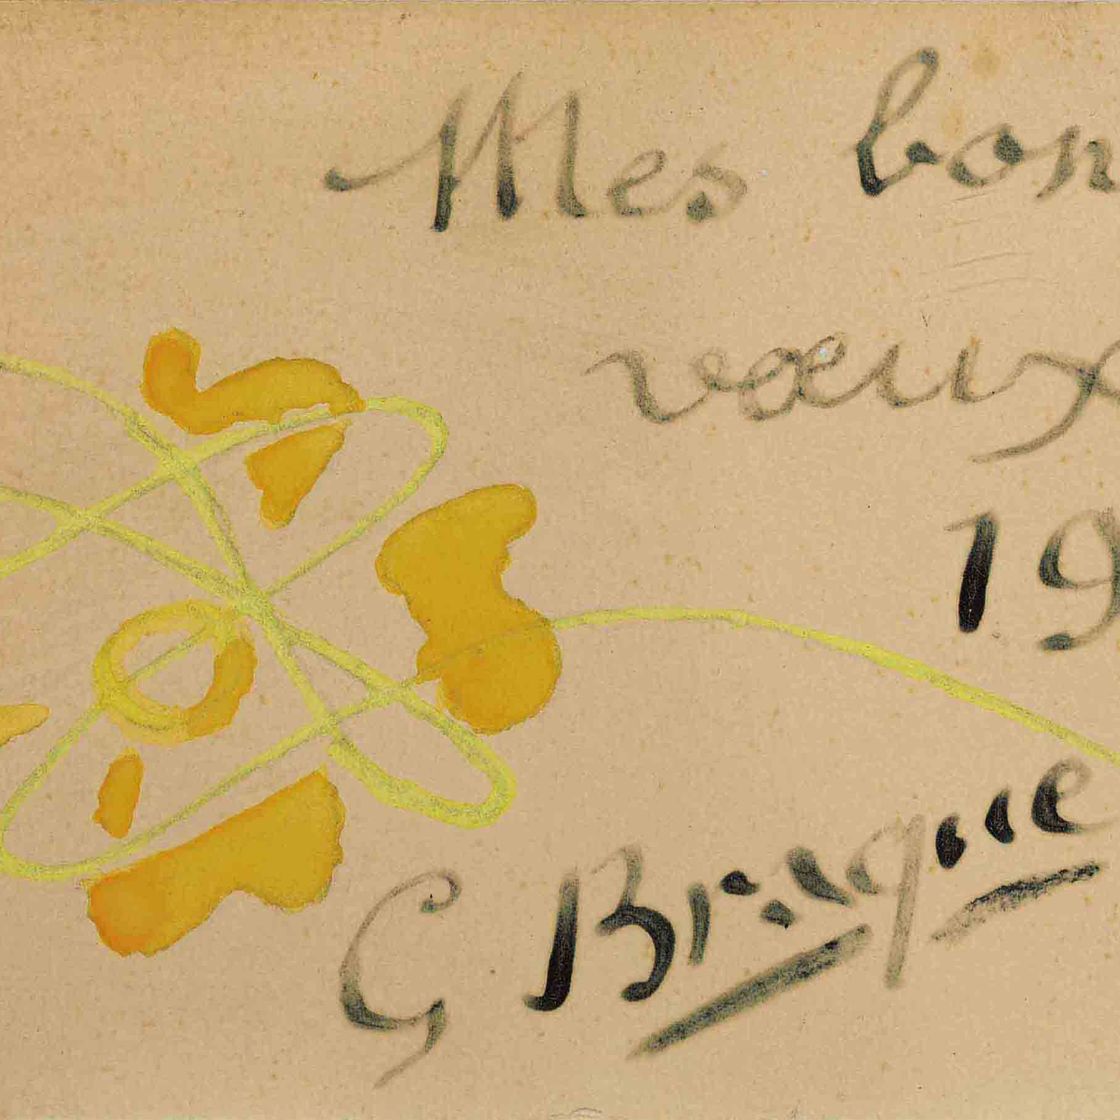 Mes bon
vœux
19
G Braque